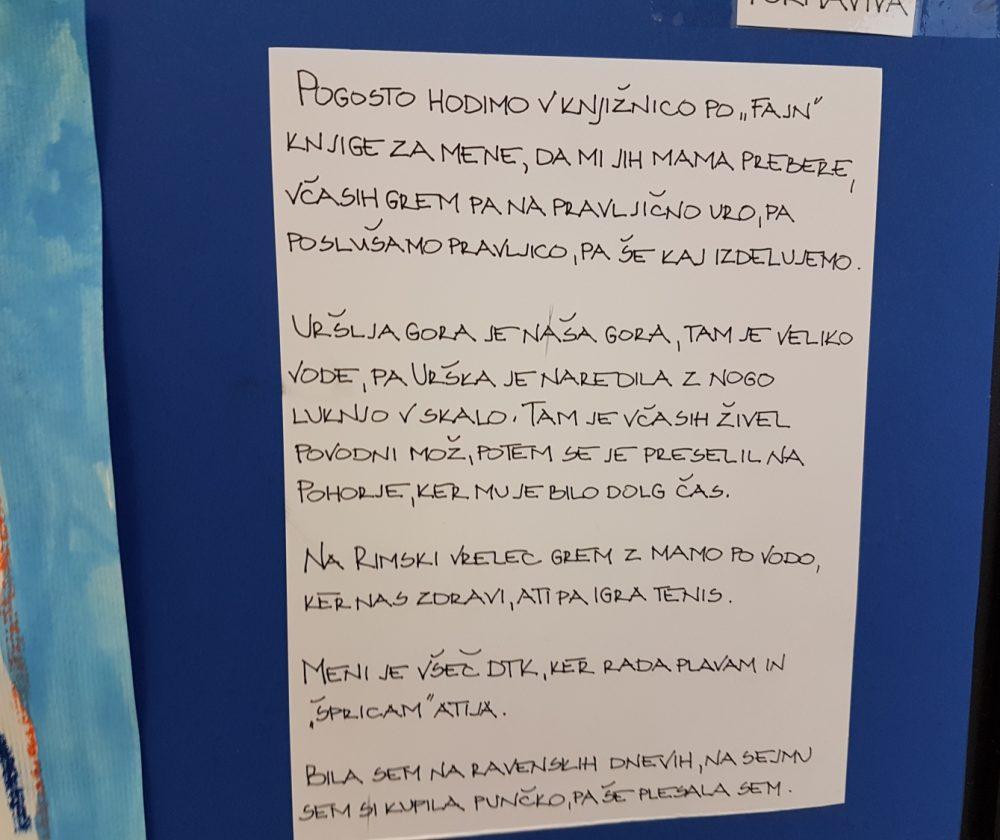 FORMAVIVA
POGOSTO HODIMO V KNJIŽNICO PO „FAJN“
KNJIGE ZA MENE, DA MI JIH MAMA PREBERE,
VČASIH GREM PA NA PRAVLJIČNO URO, PA
POSLUŠAMO PRAVLJICO, PA ŠE KAJ IZDELUJEMO.
URŠLJA GORA JE NAŠA GORA, TAM JE VELIKO
VODE, PA URŠKA JE NAREDILA Z NOGO
LUKNJO V SKALO. TAM JE VČASIH ŽIVEL
POVODNI MOŽ, POTEM SE JE PRESELIL NA
POHORJE, KER MU JE BILO DOLG ČAS.
NA RIMSKI VRELEC GREM Z MAMO PO VODO,
KER NAS ZDRAVI, ATI PA IGRA TENIS.
MENI JE VŠEČ DTK, KER RADA PLAVAM IN
„ŠPRICAM“ ATIJA.
BILA SEM NA RAVENSKIH DNEVIH, NA SEJMU
SEM SI KUPILA PUNČKO, PA ŠE PLESALA SEM.